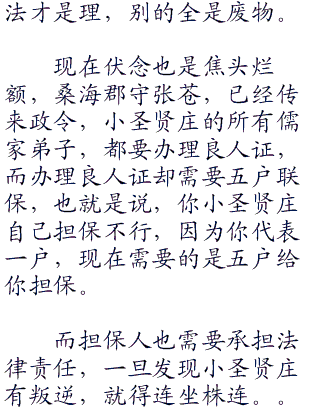 法才是理，别的全是废物。
现在伏念也是焦头烂
额，桑海郡守张苍，已经传
来政令，小圣贤庄的所有儒
家弟子，都要办理良人证，
而办理良人证却需要五户联
保，也就是说，你小圣贤庄
自己担保不行，因为你代表
一户，现在需要的是五户给
你担保。
而担保人也需要承担法
律责任，一旦发现小圣贤庄
有叛逆，就得连坐株连。。